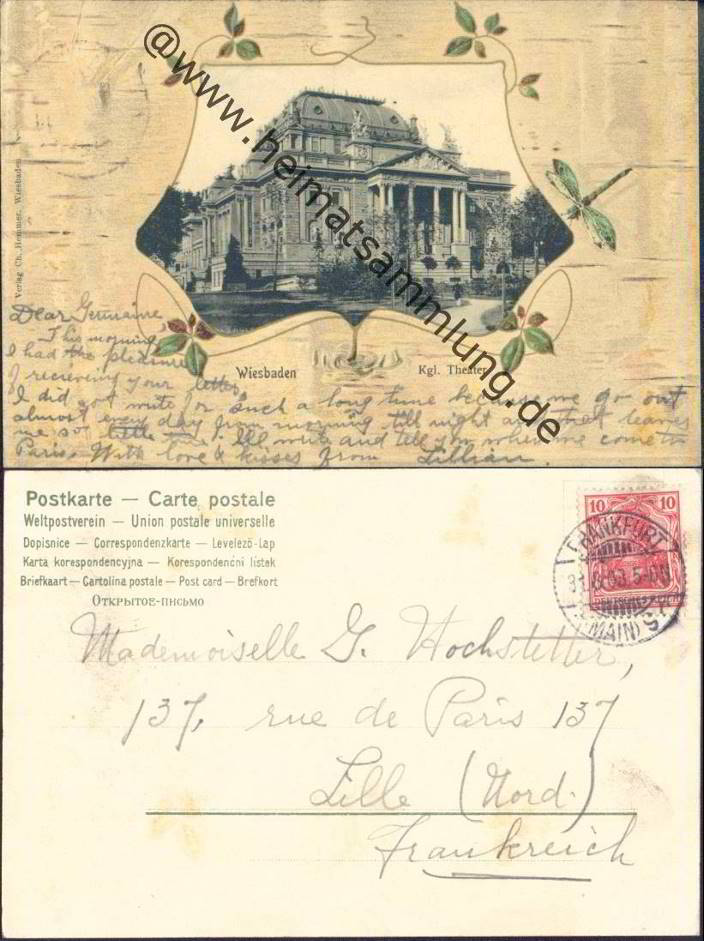 @www.heimatsammlung.de
Verlag Ch. Hemmer, Wiesbaden
Wiesbaden
Kgl. Theater
Dear Germaine,
This morning
I had the pleasure
of recieving your letter
I did not write for such a long time because we go out
almost every day from morning till night and that leaves
me so little time. Ill write and tell you when we come to
Paris. With love & kisses from Lillian.
Postkarte — Carte postale
Weltpostverein — Union postale universelle
Dopisnice — Correspondenzkarte — Levelező-Lap
Karta korespondencyjna — Korespondenční lístek
Briefkaart — Cartolina postale — Post card — Brefkort
Открытое-письмо
10 10
DEUTSCHES REICH
FRANKFURT
5-6N
(MAIN) 9
Mademoiselle G. Hochstetter,
137, rue de Paris 137
Lille (Nord)
Frankreich